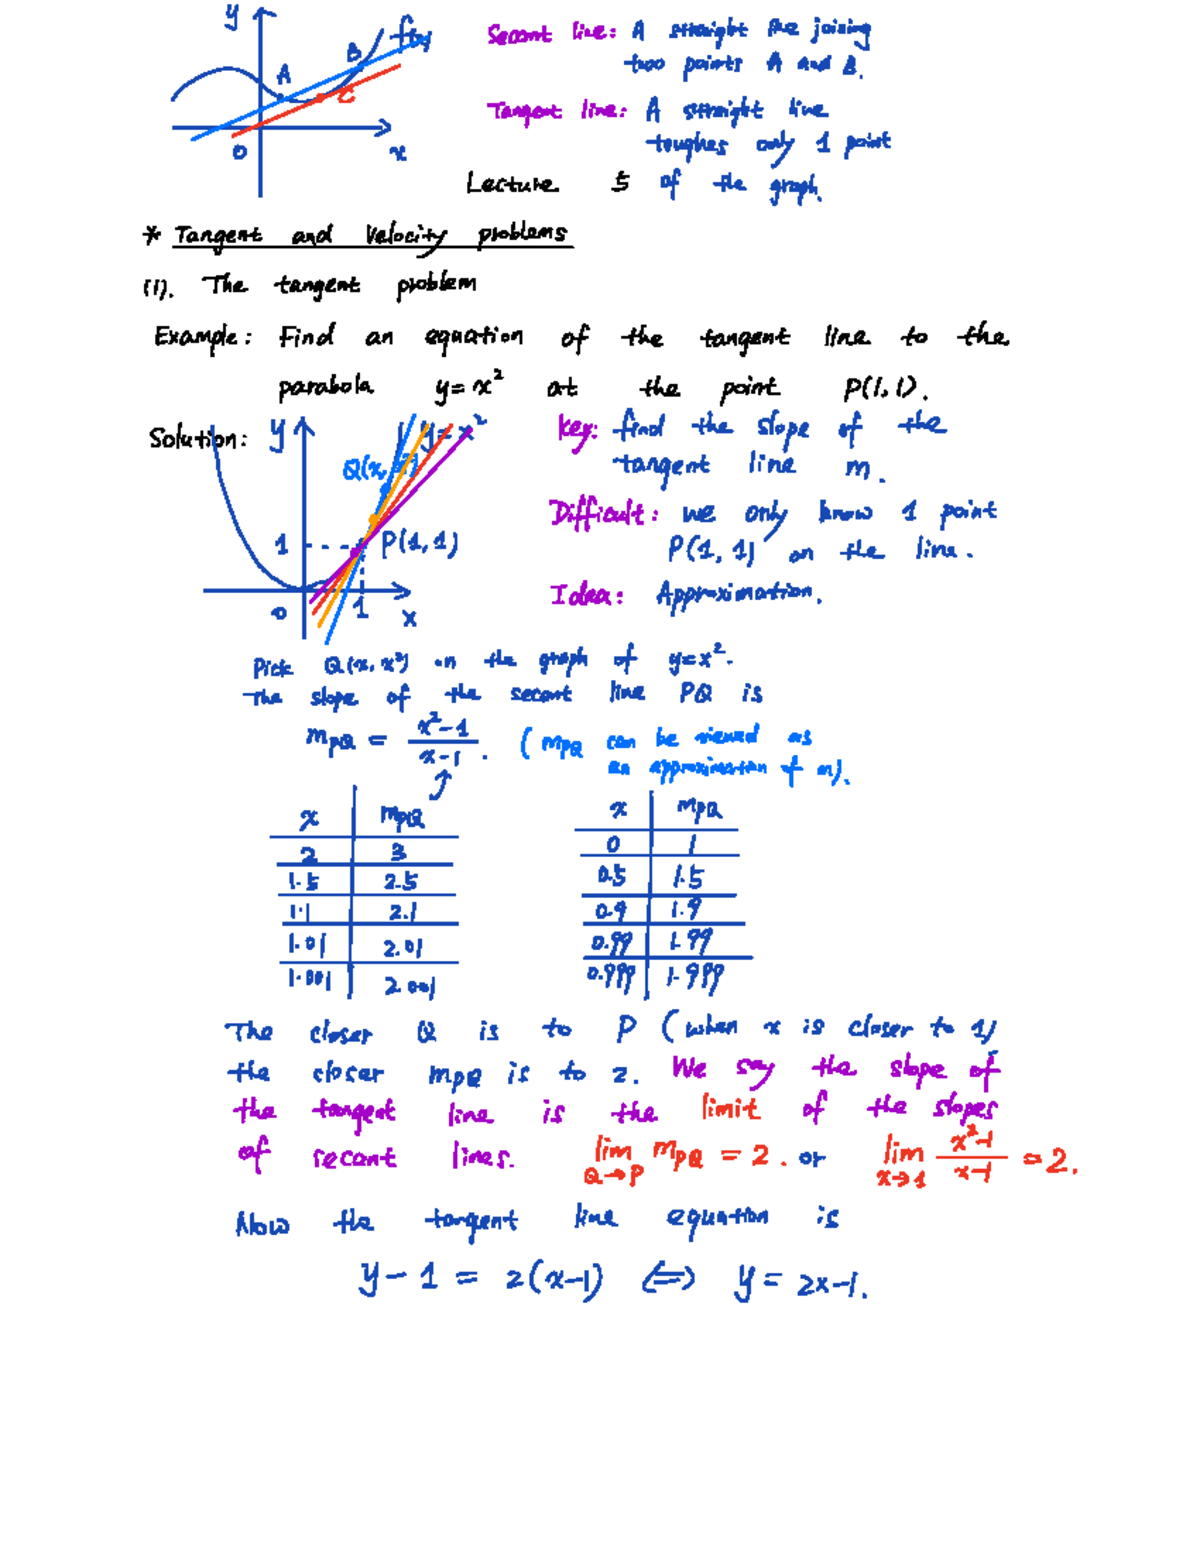 y
f(x)
B
A
C
0
x
Secant line: A straight line joining
two points A and B.
Tangent line: A straight line
toughes only 1 point
of the graph.
Lecture 5
* Tangent and Velocity problems
(1). The tangent problem
Example: Find an equation of the tangent line to the
parabola y = x² at the point P(1,1).
Solution:
y
y = x²
Q(x, x²)
1
P(1,1)
0
1
x
Key: find the slope of the
tangent line m.
Difficult: we only know 1 point
P(1,1) on the line.
Idea: Approximation.
Pick Q(x, x²) on the graph of y=x².
The slope of the secant line PQ is
m_PQ = (x²-1)/(x-1). (m_PQ can be viewed as
an approximation of m).
x m_PQ
2 3
1.5 2.5
1.1 2.1
1.01 2.01
1.001 2.001
x m_PQ
0 1
0.5 1.5
0.9 1.9
0.99 1.99
0.999 1.999
The closer Q is to P (when x is closer to 1)
the closer m_PQ is to 2. We say the slope of
the tangent line is the limit of the slopes
of secant lines. lim_{Q→P} m_PQ = 2. or lim_{x→1} (x²-1)/(x-1) = 2.
Now the tangent line equation is
y - 1 = 2(x-1) ⟺ y = 2x-1.